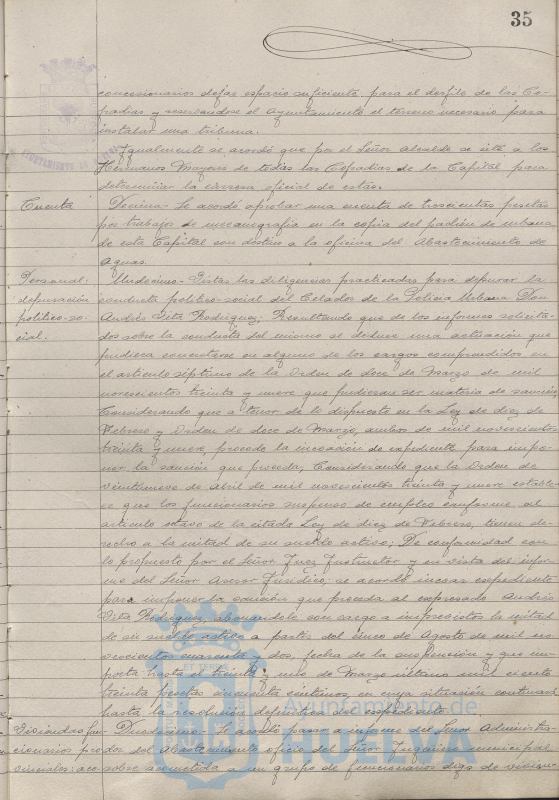 35
concesionarios dejar espacio suficiente para el desfile de las Co-
fradias y reservandose el Ayuntamiento el terreno necesario para
instalar una tribuna.
Igualmente se acordó que por el Señor Alcalde se cite a los
Hermanos Mayores de todas las Cofradias de la Capital para
determinar la carrera oficial de estas.
Cuenta
Decimo - Se acordó aprobar una cuenta de trescientas pesetas
por trabajos de mecanografia en la copia del padrón de urbana
de esta Capital con destino a la oficina del Abastecimiento de
Aguas.
Personal:
depuración
político-so-
cial.
Undecimo - Vistas las diligencias practicadas para depurar la
conducta politico-social del Celador de la Policia Urbana Don
Andrés Vita Rodriguez; Resultando que de los informes solicita-
dos sobre la conducta del mismo se deduce una actuación que
pudiera concretarse en alguno de los cargos comprendidos en
el articulo séptimo de la Orden de doce de Marzo de mil
novecientos treinta y nueve que pudieran ser materia de sanción;
Considerando que a tenor de lo dispuesto en la Ley de diez de
Febrero y Orden de doce de Marzo, ambas de mil novecientos
treinta y nueve, procede la incoación de expediente para impo-
ner la sanción que proceda; Considerando que la Orden de
veintinueve de Abril de mil novecientos treinta y nueve estable-
ce que los funcionarios suspenso de empleo conforme al
articulo octavo de la citada Ley de diez de Febrero, tienen de-
recho a la mitad de su sueldo activo; De conformidad con
lo propuesto por el Señor Juez Instructor y en vista del infor-
me del Señor Asesor Juridico; se acordó incoar expediente
para imponer la sanción que proceda al expresado Andrés
Vita Rodriguez, abonandole con cargo a imprevistos la mitad
de su sueldo activo a partir del cinco de Agosto de mil no-
vecientos cuarenta y dos, fecha de la suspensión y que im-
porta hasta el treinta y uno de Marzo último mil ciento
treinta pesetas cincuenta centimos, en cuya situación continuará
hasta la resolución definitiva del expediente.
Viviendas fun-
cionarios pro-
vinciales: aco-
Duodecimo - Se acordó pasar a informe del Señor Administra-
dor del Abastecimiento oficio del Señor Ingeniero municipal
sobre acometida a un grupo de funcionarios digo de vivien-
Ayuntamiento de
HUELVA